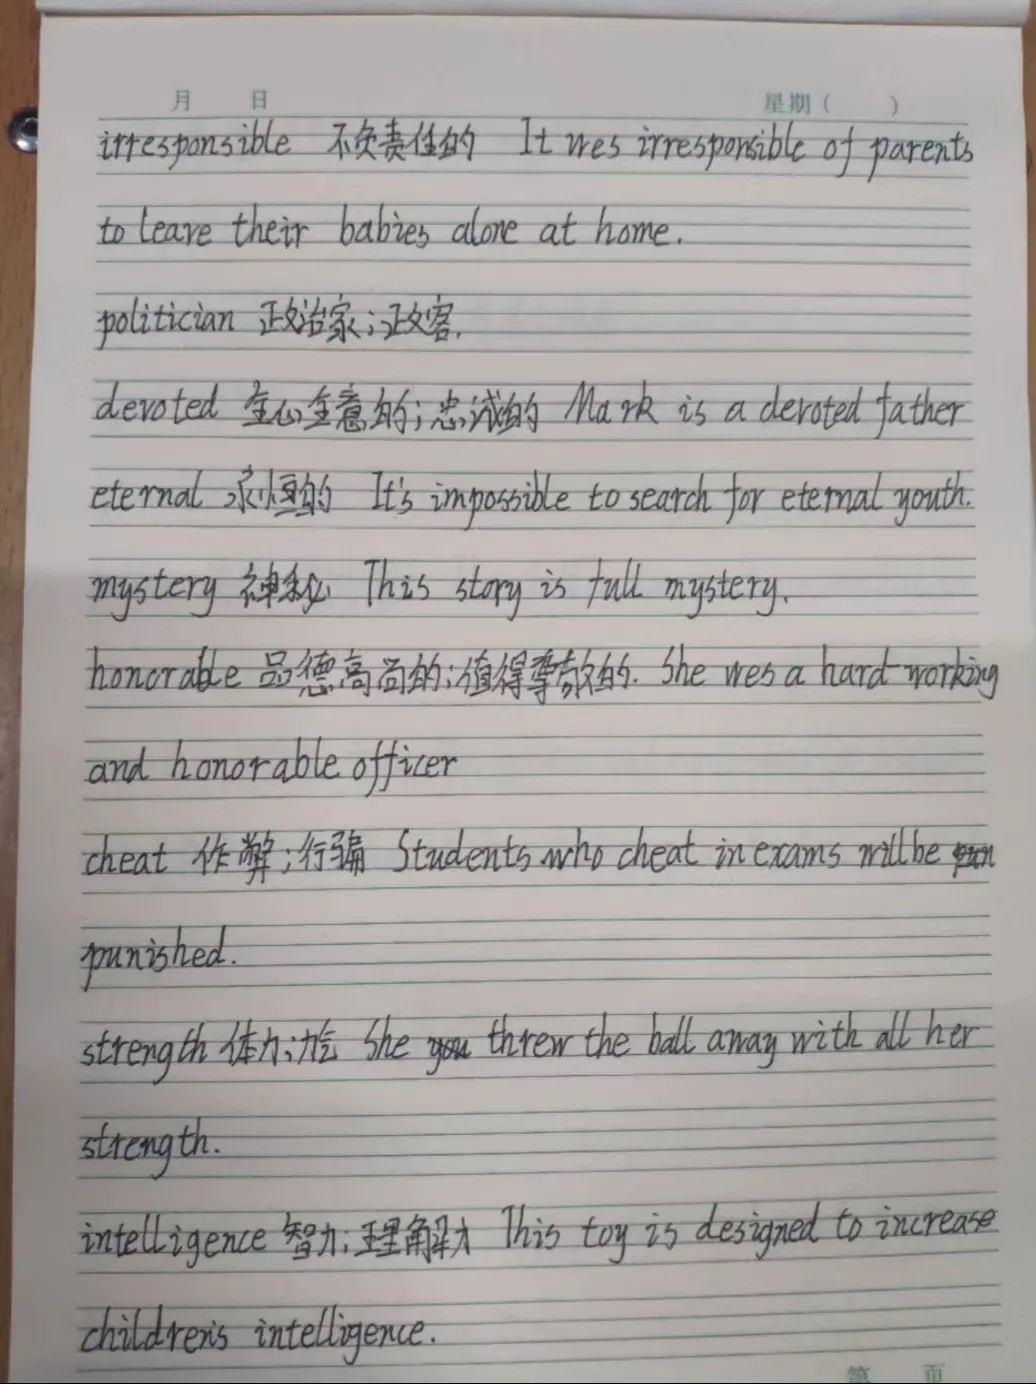 月 日 星期( )
irresponsible 不负责任的 It wes irresponsible of parents
to leave their babies alone at home.
politician 政治家;政客.
devoted 全心全意的;忠诚的 Mark is a devoted father
eternal 永恒的 It's impossible to search for eternal youth.
mystery 神秘 This story is full mystery.
honorable 品德高尚的;值得尊敬的. She wes a hard-working
and honorable officer
cheat 作弊;行骗 Students who cheat in exams will be
punished.
strength 体力; She threw the ball away with all her
strength.
intelligence 智力;理解力 This toy is designed to increase
children's intelligence.
第 页